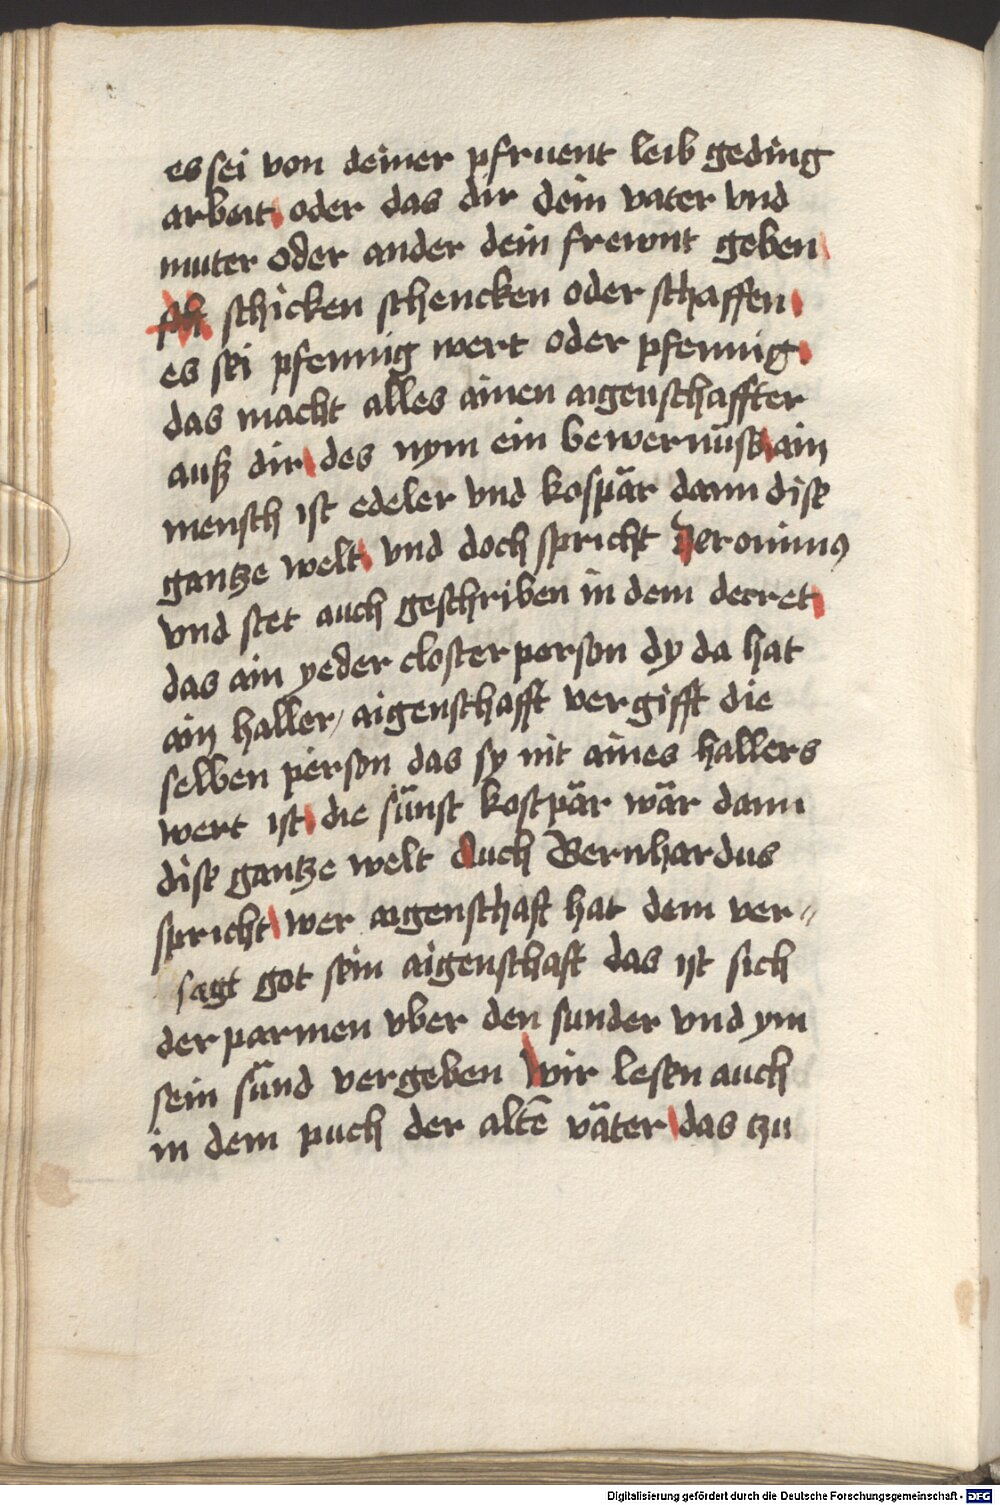 es sei von deiner pfruent leib geding
arbeit oder das dir dein vater vnd
muter oder ander dein frewnt geben
schicken schencken oder schaffen
es sei pfennig wert oder pfennig
das macht alles ainen aigenschaffter
auß dir des nym ein bewernüss ain
mensch ist edeler vnd kospär dann dise
gantze welt vnd doch spricht Jeronimus
vnd stet auch geschriben in dem decret
das ain yeder closter person dy da hat
ain haller / aigenschafft vergifft die
selben person das sy nit aines hallers
wert ist die sünst kostpär wär dann
dise gantze welt Auch Bernhardus
spricht wer aigenschaft hat dem ver〃
sagt got sein aigenschaft das ist sich
der parmen vber den sunder vnd ym
sein sünd vergeben Wir lesen auch
in dem puch der altē väter das tzu
Digitalisierung gefördert durch die Deutsche Forschungsgemeinschaft - DFG